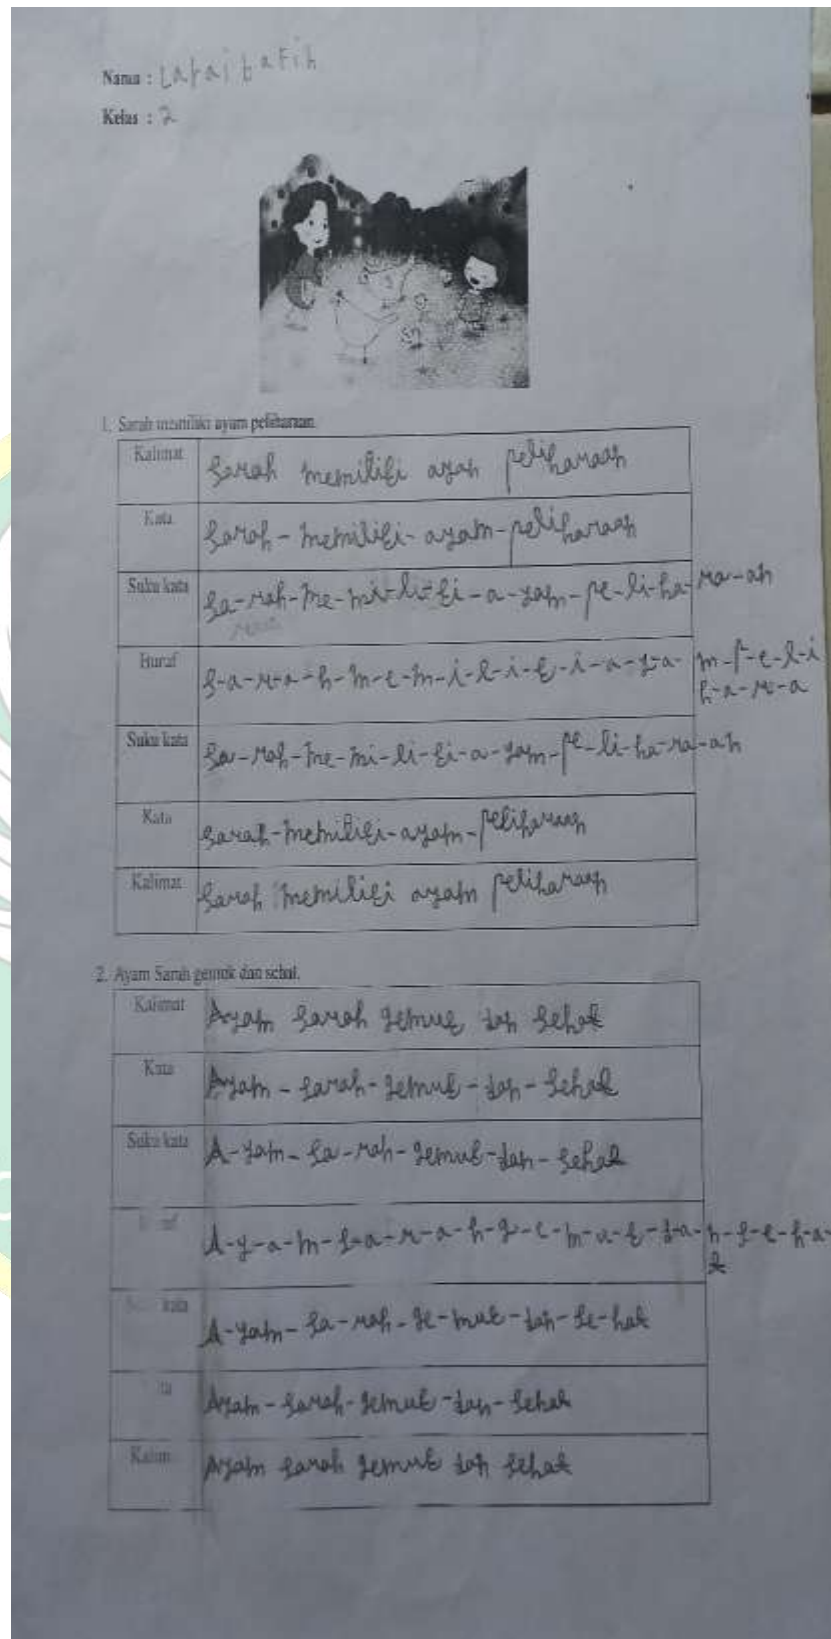 Nama :
Kelas : 2
1. Sarah memiliki ayam peliharaan.
Kalimat Sarah memiliki ayah peliharaan
Kata Sarah - memiliki - ayam - peliharaan
Suku kata Sa-rah-me-mi-li-ki-a-yam-pe-li-ha-ra-an
Huruf S-a-r-a-h-m-e-m-i-l-i-k-i-a-y-a-m-p-e-l-i
h-a-r-a
Suku kata Sa-rah-me-mi-li-ki-a-yam-pe-li-ha-ra-an
Kata Sarah-memiliki-ayam-peliharaan
Kalimat Sarah memiliki ayam peliharaan
2. Ayam Sarah gemuk dan sehat.
Kalimat Ayam Sarah gemuk dan sehat
Kata Ayam - Sarah - gemuk - dan - Sehat
Suku kata A-yam-Sa-rah-gemuk-dan-Sehat
A-y-a-m-S-a-r-a-h-g-e-m-u-k-d-a-n-s-e-h-a-
t
kata A-yam-Sa-rah-ge-muk-dan-Se-hat
Ayam-Sarah-gemuk-dan-Sehat
Kalim Ayam Sarah gemuk dan Sehat